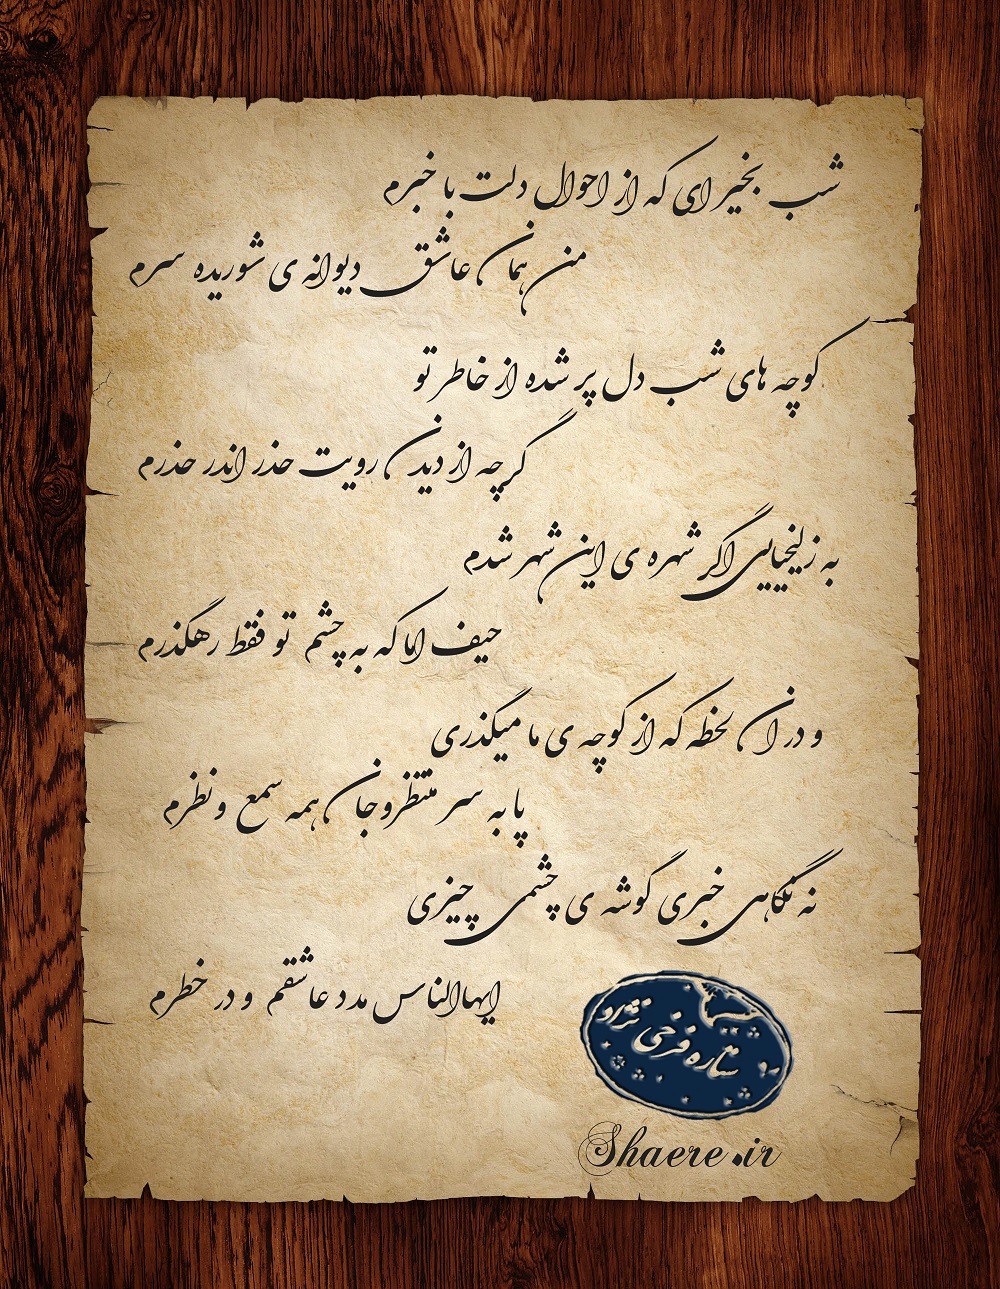 شب بخیر ای که از احوال دلت با خبرم
من همان عاشق دیوانه ی شوریده سرم
کوچه های شب دل پر شده از خاطر تو
گرچه از دیدن رویت حذر اندر حذرم
به زلیخایی اگر شهره ی این شهر شدم
حیف اما که به چشم تو فقط رهگذرم
و در ان لحظه که از کوچه ی ما میگذری
پا به سر منتظر و جان همه سمع و نظرم
نه نگاهی خبری گوشه ی چشمی چیزی
ایهاالناس مدد عاشقم و در خطرم
ستاره فرخی نژاد
Shaere.ir